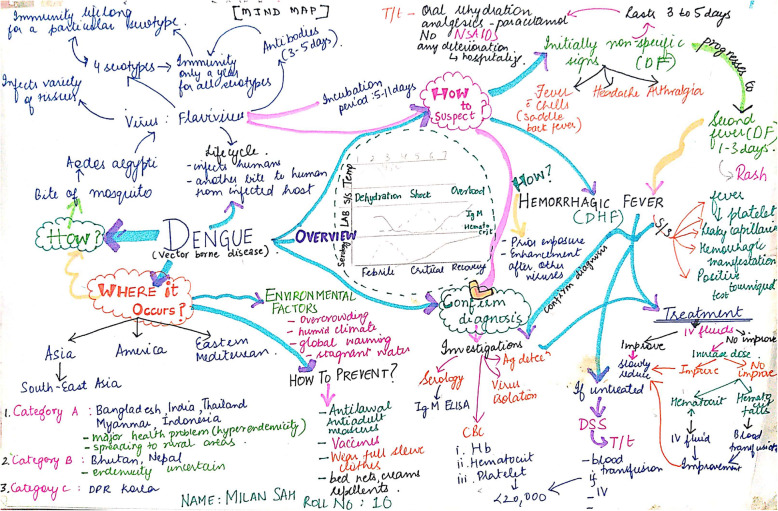 [MIND MAP]
Immunity lifelong
for a particular serotype.
4 serotypes
Immunity
only a year
for all serotypes
Antibodies
(3-5 days)
Infects variety
of tissues
Virus: Flavivirus
Incubation
period: 5-11 days
Lifecycle.
- infects humans
- another bite to human
from infected host
Aedes aegypti
Bite of mosquito
How?
DENGUE
(vector borne disease.)
OVERVIEW
WHERE it
OCCURS?
Asia
America
Eastern
Mediterrean.
South-East Asia
1. Category A : Bangladesh, India, Thailand
Myanmar, Indonesia
- major health problem (hyperendemicity)
- spreading to rural areas.
2. Category B : Bhutan, Nepal
- endemicity uncertain
3. Category C : DPR Korea
ENVIRONMENTAL
FACTORS
- overcrowding
- humid climate
- global warming
- stagnant water
HOW TO PREVENT?
- Antilarval
Antiadult
measures
- Vaccines
- Wear full sleeve
clothes
- bed nets, creams
repellents.
NAME: MILAN SAH
ROLL NO: 16
T/t - Oral rehydration
analgesics - paracetamol
No NSAIDS
any deterioration
↳ hospitalise.
Lasts 3 to 5 days
Initially non-specific
signs (DF)
Fever
& chills
(saddle
back fever)
Headache
Arthralgia
progresses to
Second
fever (DF)
1-3 days.
Rash
HOW
to
SUSPECT?
How?
1 2 3 4 5 6
Temp
S/S
Dehydration Shock Overload
LAB
IgM
Hemato
crit
Serology
Febrile Critical Recovery
HEMORRHAGIC FEVER
(DHF)
- Prior exposure
- Enhancement
after other
viruses
S/S
fever
↓ platelet
leaky capillaries
Hemorrhagic
manifestation
Positive
tourniquet
test
Confirm
diagnosis
Confirm diagnoses
Investigation
Serology
IgM ELISA
Virus
isolation
CBC
i. Hb
ii. Hematocrit
iii. Platelet
<20,000
If untreated
DSS
T/t
- blood
transfusion
- IV
Treatment
IV fluids
Improve
No improve
slowly
reduce
Increase dose
Improve
No
improve
Hematocrit
Hematocrit
falls
IV fluid
Blood
transfusion
Improvement